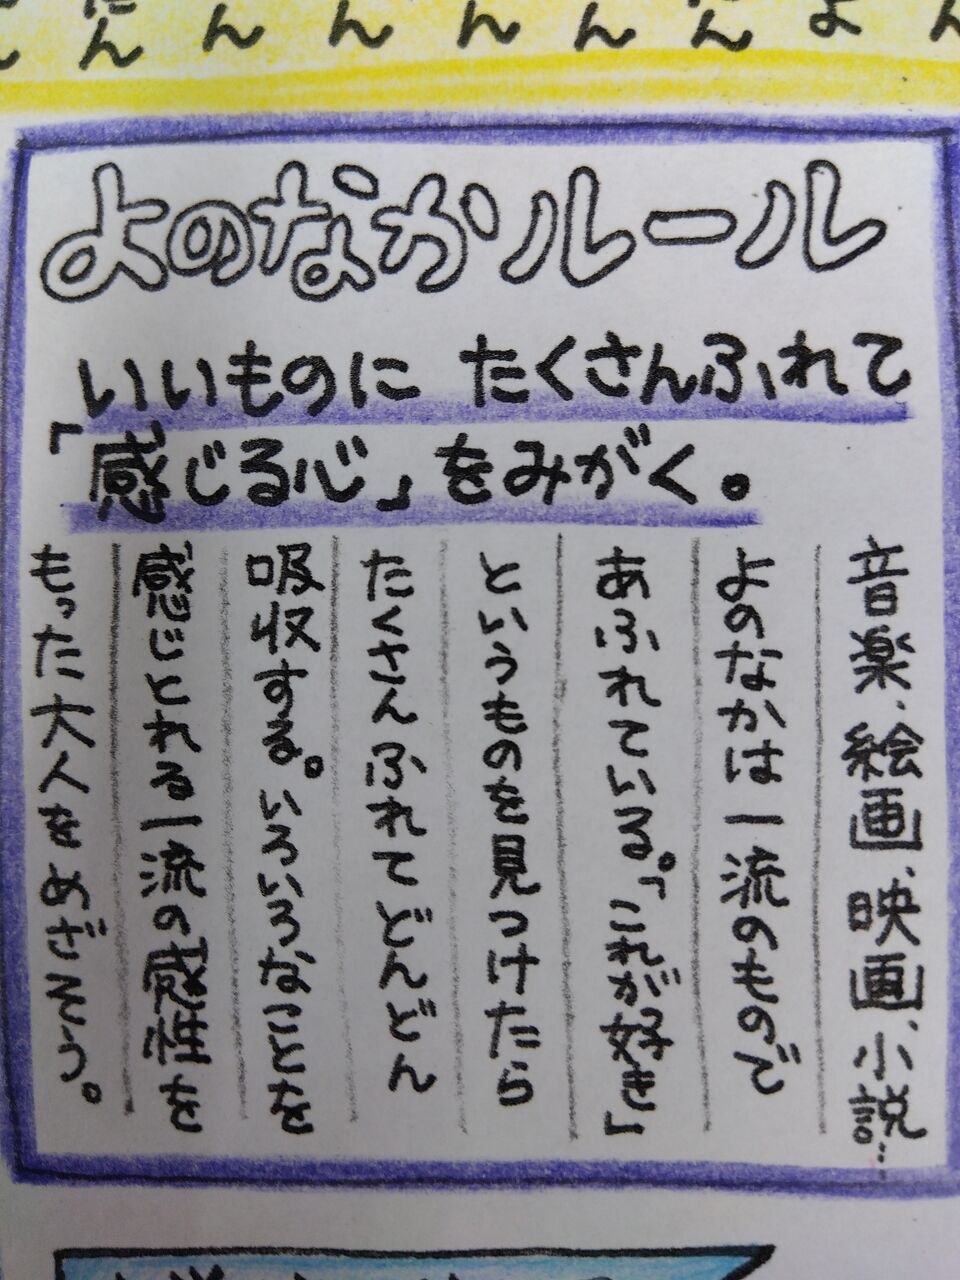 ん
ん
ん
ん
ん
ん
ん
よ
ん
よのなかルール
いいものに たくさんふれて
「感じる心」をみがく。
音楽、絵画、映画、小説…
よのなかは一流のもので
あふれている。「これが好き」
というものを見つけたら
たくさんふれてどんどん
吸収する。いろいろなことを
感じとれる一流の感性を
もった大人をめざそう。